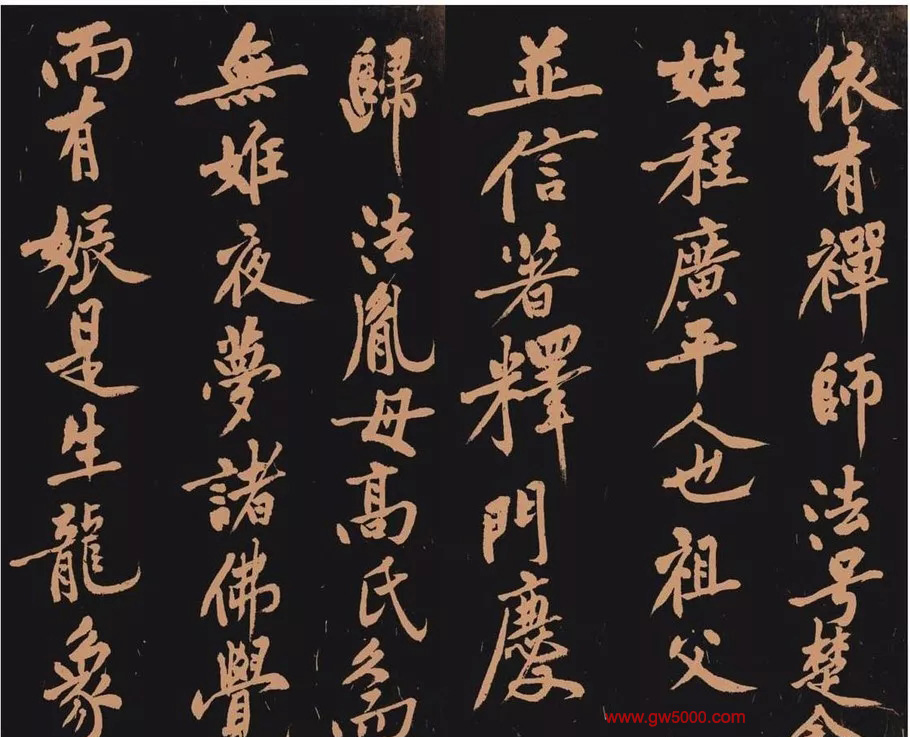 依有禪師法号楚金
姓程廣平人也祖父
並信著釋門慶
歸法胤母高氏久而
無姙夜夢諸佛覺
而有娠是生龍象
www.gw5000.com